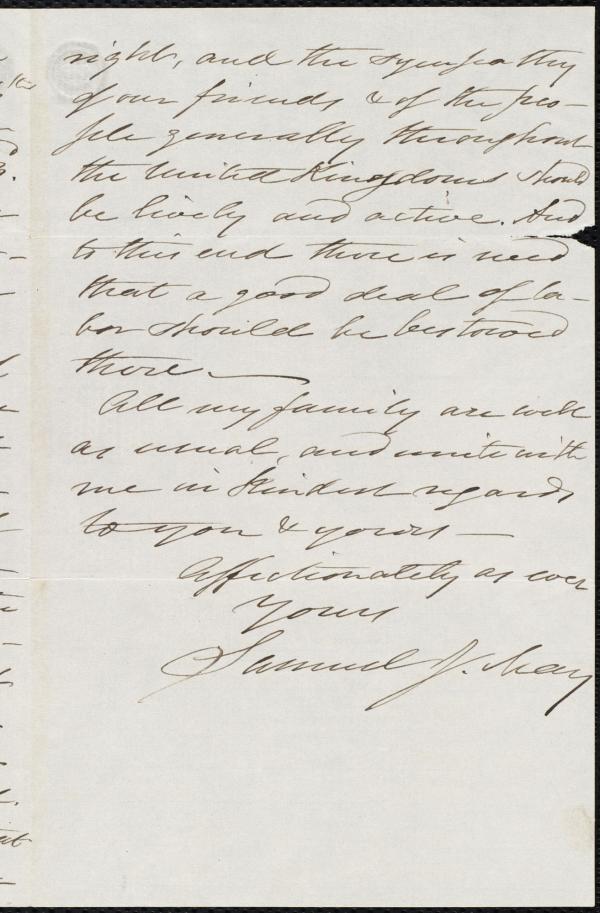 right, and the sympathy
of our friends & of the peo-
ple generally throughout
the United Kingdoms should
be lively and active. And
to this end there is need
that a good deal of la-
bor should be bestowed
there.—
All my family are well
as usual, and unite with
me in kindest regards
to you & yours—
Affectionately as ever
Yours
Samuel J. May